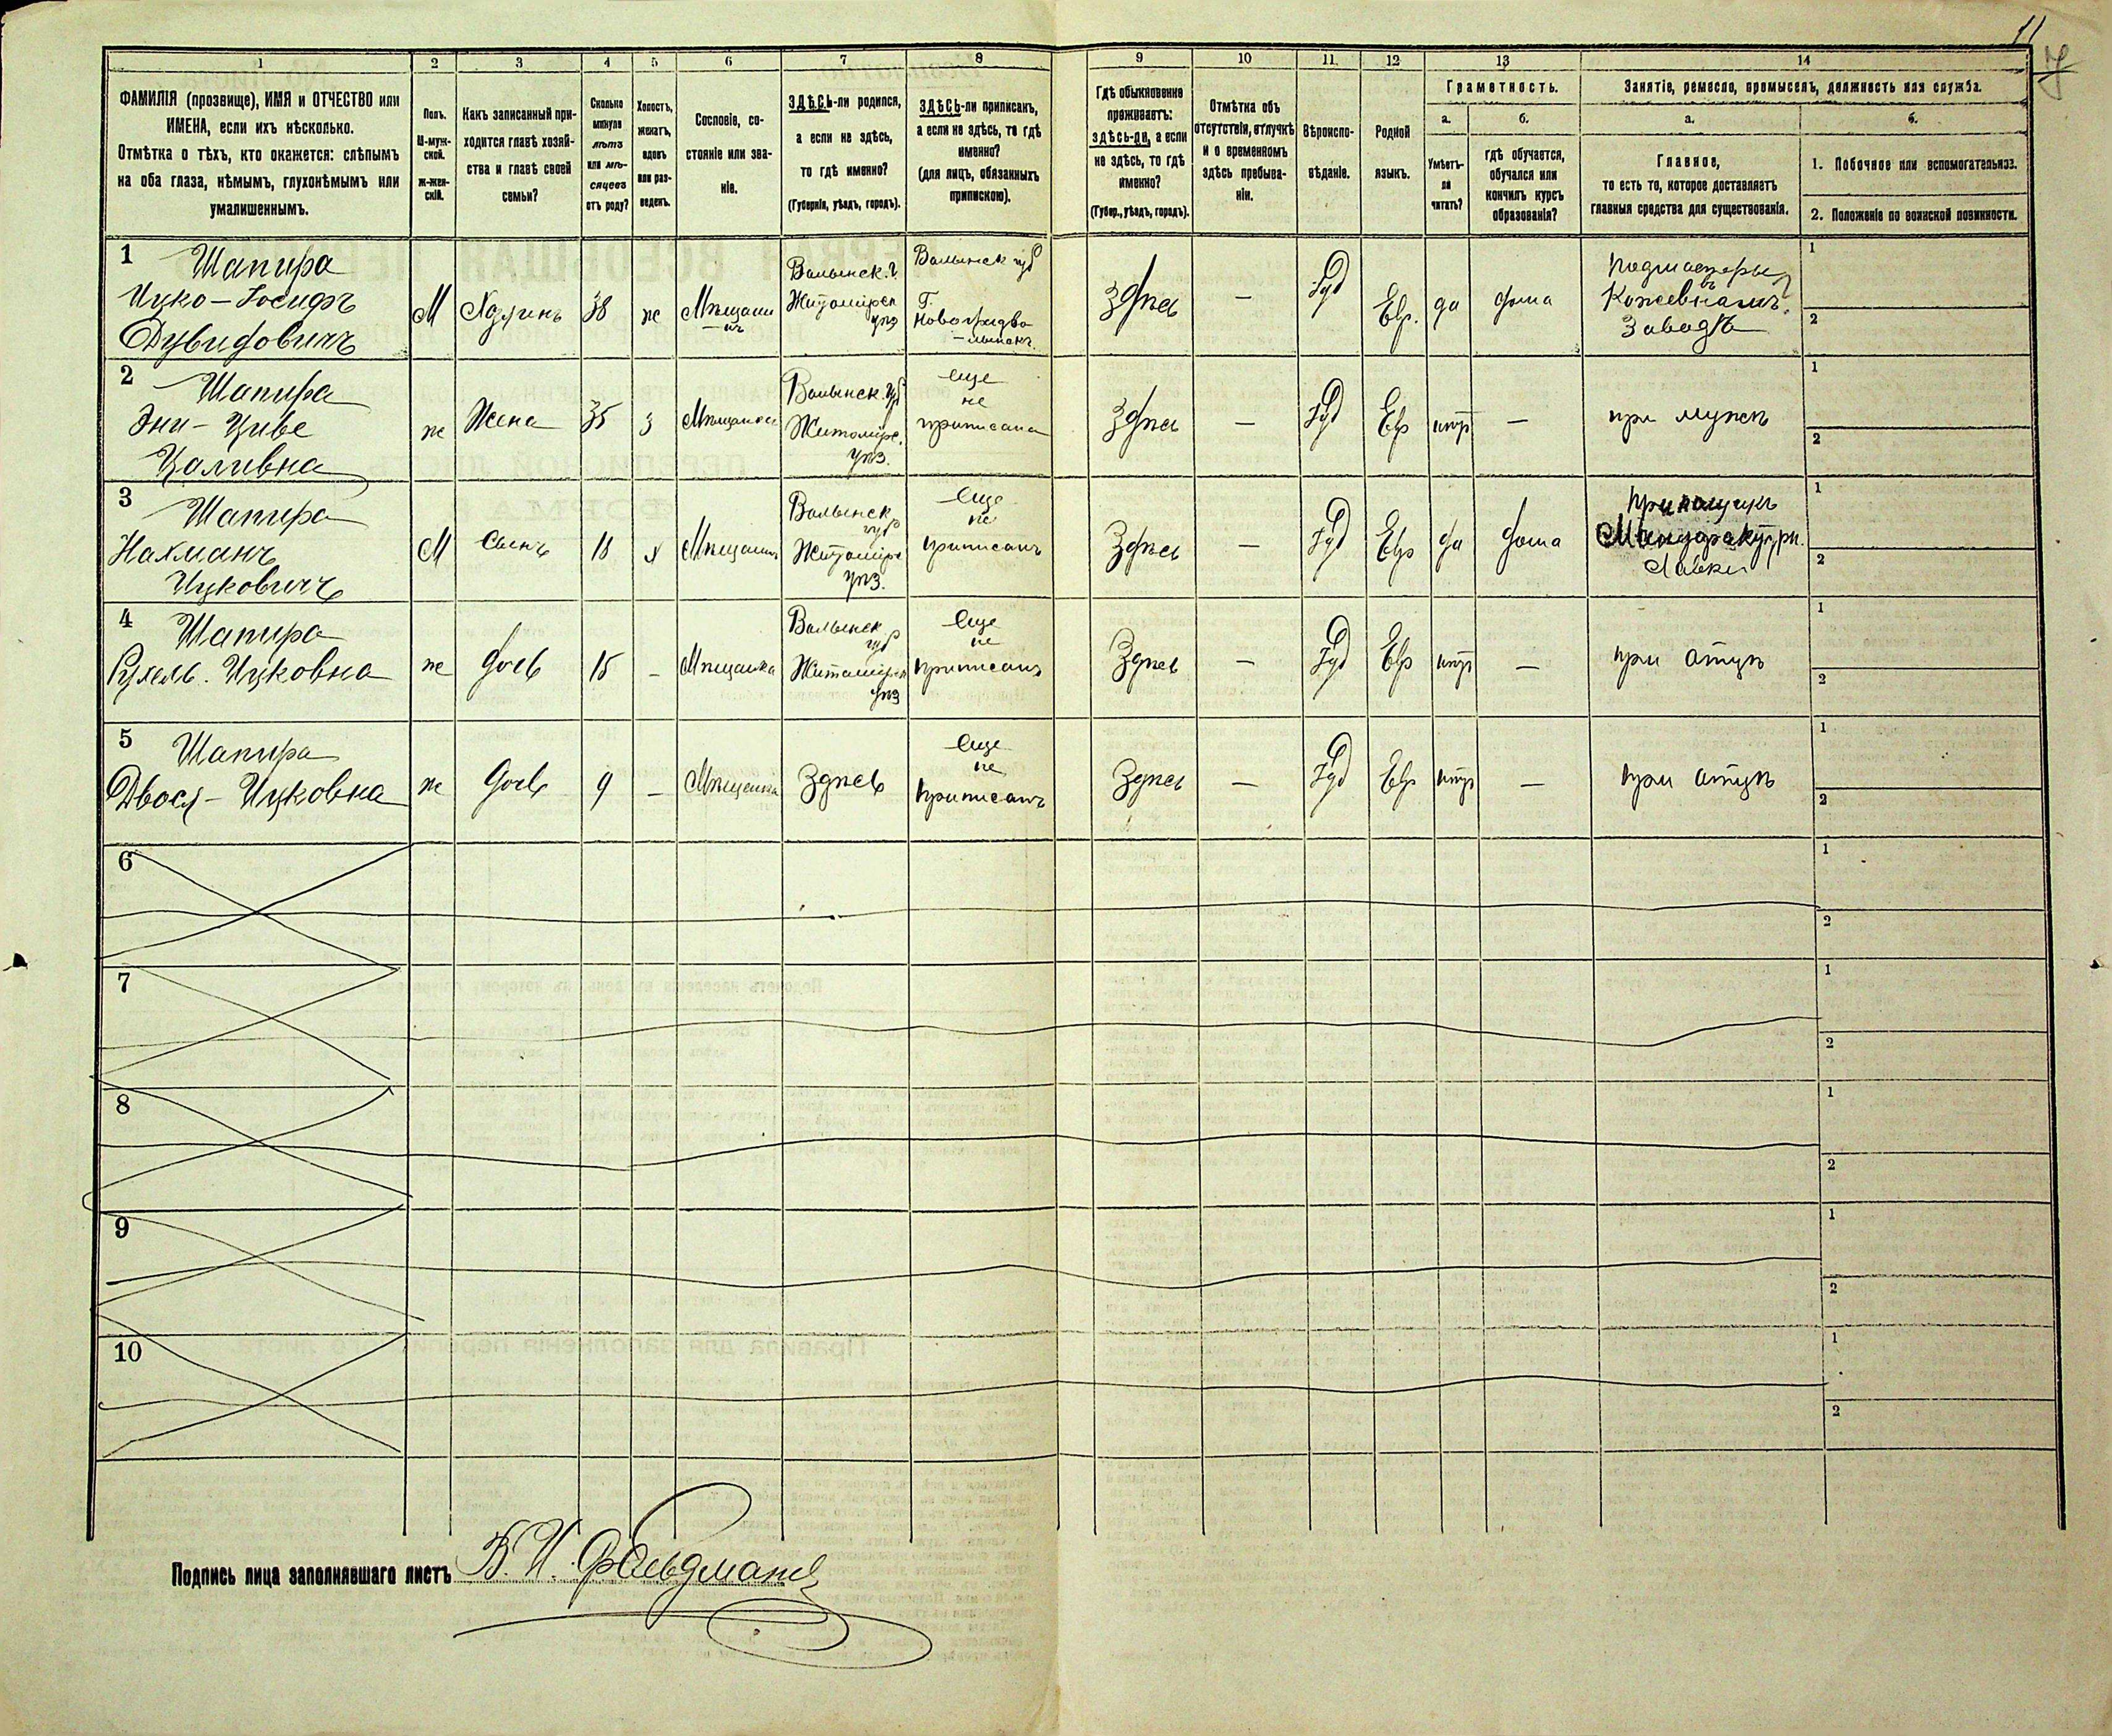 11
1 2 3 4 5 6 7 8 9 10 11 12 13 14
ФАМИЛІЯ (прозвище), ИМЯ и ОТЧЕСТВО или
ИМЕНА, если ихъ нѣсколько.
Отмѣтка о тѣхъ, кто окажется: слѣпымъ
на оба глаза, нѣмымъ, глухонѣмымъ или
умалишеннымъ.
Полъ.
М-муж-
ской.
ж-жен-
скій.
Какъ записанный при-
ходится главѣ хозяй-
ства и главѣ своей
семьи?
Сколько
минуло
лѣтъ
или мѣ-
сяцевъ
отъ роду?
Холостъ,
женатъ,
вдовъ
или раз-
веденъ.
Сословіе, со-
стояніе или зва-
ніе.
ЗДѢСЬ-ли родился,
а если не здѣсь,
то гдѣ именно?
(Губернія, уѣздъ, городъ).
ЗДѢСЬ-ли приписанъ,
а если не здѣсь, то гдѣ
именно?
(для лицъ, обязанныхъ
припискою).
Гдѣ обыкновенно
проживаетъ:
здѣсь-ли, а если
не здѣсь, то гдѣ
именно?
(Губер., уѣздъ, городъ).
Отмѣтка объ
отсутствіи, отлучкѣ
и о временномъ
здѣсь пребыва-
ніи.
Вѣроиспо-
вѣданіе.
Родной
языкъ.
Грамотность.
а.
Умѣетъ-
ли
читать?
б.
гдѣ обучается,
обучался или
кончилъ курсъ
образованія?
Занятіе, ремесло, промыселъ, должность или служба.
а.
Главное,
то есть то, которое доставляетъ
главныя средства для существованія.
б.
1. Побочное или вспомогательное.
2. Положеніе по воинской повинности.
1
Шапира
Ицко-Іосифъ
Дувидовичъ
М
Хозяинъ
38
ж
Мѣщани
нъ
Волынск. г.
Житомірск
уѣз
Волынск губ
Г.
Новоградво
лынскъ.
Здѣсь
—
Іуд
Евр.
да
дома
подмастерье
въ
Кожевномъ
Заводѣ
1
2
2
Шапира
Эни-Циве
Цаливна
ж
Жена
35
з
Мѣщанка
Волынск. губ
Житомірс.
уѣз.
еще
не
приписана
Здѣсь
—
Іуд
Евр
нѣт
—
при мужѣ
1
2
3
Шапира
Нахманъ
Ицковичъ
М
Сынъ
18
х
Мѣщанин
Волынск
губ
Житомірс
уѣз.
Еще
не
приписанъ
Здѣсь
—
Іуд
Евр
да
дома
прикащикъ
Мануфактурн.
Лавки
1
2
4
Шапира
Рухель. Ицковна
ж
дочь
15
—
Мѣщанка
Волынск
губ
Житомірск
уѣз
Еще
не
приписанъ
Здѣсь
—
Іуд
Евр
нѣт
—
при отцѣ
1
2
5
Шапира
Двося-Ицковна
ж
дочь
9
—
Мѣщанка
Здѣсь
Еще
не
приписанъ
Здѣсь
—
Іуд
Евр
нѣт
—
при отцѣ
1
2
6
1
2
7
1
2
8
1
2
9
1
2
10
1
2
Подпись лица заполнявшаго листъ В. И. Фельдманъ